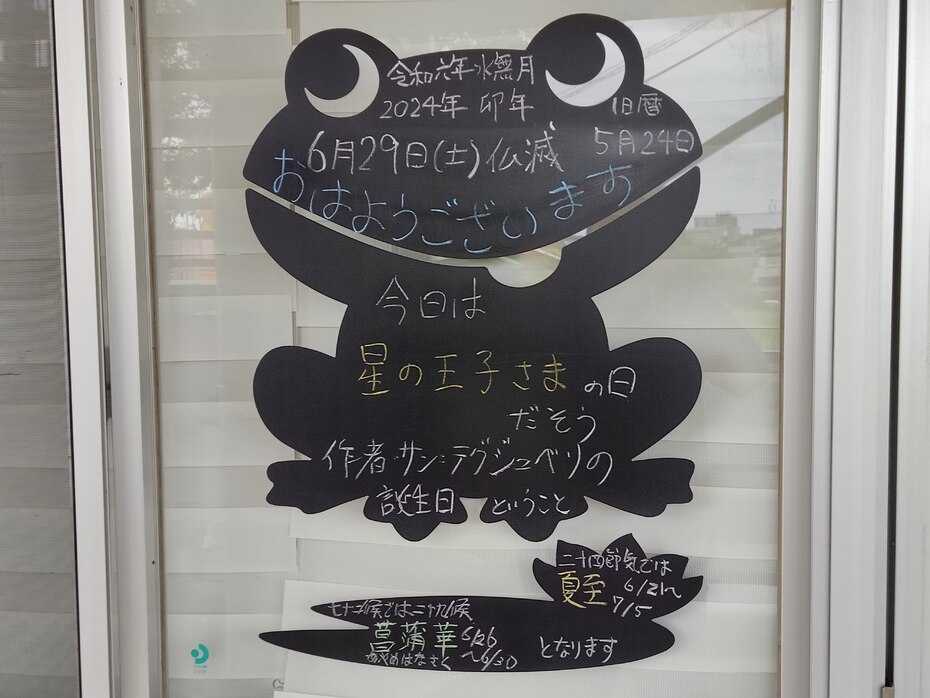 令和六年 水無月
2024年 卯年
旧暦
5月24日
6月29日(土)仏滅
おはようございます
今日は
星の王子さまの日
だそう
作者 サン=テグジュペリの
誕生日 ということ
二十四節気では
夏至 6/21〜
7/5
七十二候では二十九候
菖蒲華 6/26
あやめはなさく 〜6/30
となります